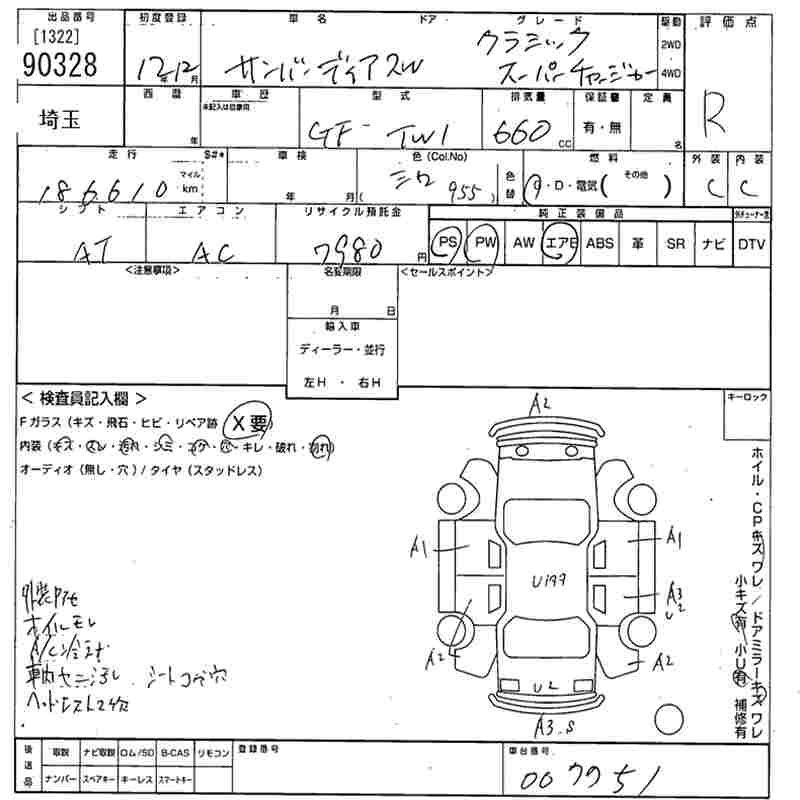 出品番号 初度登録 車名 ドア グレード 駆動 評価点
[1322]
90328
12年12月 サンバーディアスW クラシック
スーパーチャージャー
2WD
4WD
R
埼玉
西暦 車歴 型式 排気量 保証書 定員
未記入は自家用
年 GF- TW1 660 CC 有・無 名
走行 S#* 車検 色 (Col.No) 色替 燃料 外装 内装
186610 マイル km 年 月 ( 955 ) G・D・電気 ( その他 ) C C
シフト エアコン リサイクル預託金 純正装備品
AT AC 7980 円 PS PW AW エアB ABS 革 SR ナビ DTV
<注意事項> 名変期限 <セールスポイント>
月 日
輸入車
ディーラー・並行
左H ・ 右H
< 検査員記入欄 >
Fガラス (キズ・飛石・ヒビ・リペア跡 X要)
内装 (キズ・スレ・汚れ・シミ・コゲ・穴・キレ・破れ・割れ)
オーディオ (無し・穴) / タイヤ (スタッドレス)
キーロック
ホイル・CPキズ ワレ / ドアミラーキズ ワレ
小キズ有 小U有 補修有
A2
A1 A1
U199
A3
U2
A2 A2
U2
A3.S
外装
ホイルモレ
A/C
車内ヤニ汚れ シートコゲ穴
ヘッドレスト穴
後送品 取説 ナビ取説 ロム/SD B-CAS リモコン 登録番号 車台番号
ナンバー スペアキー キーレス スマートキー
007751